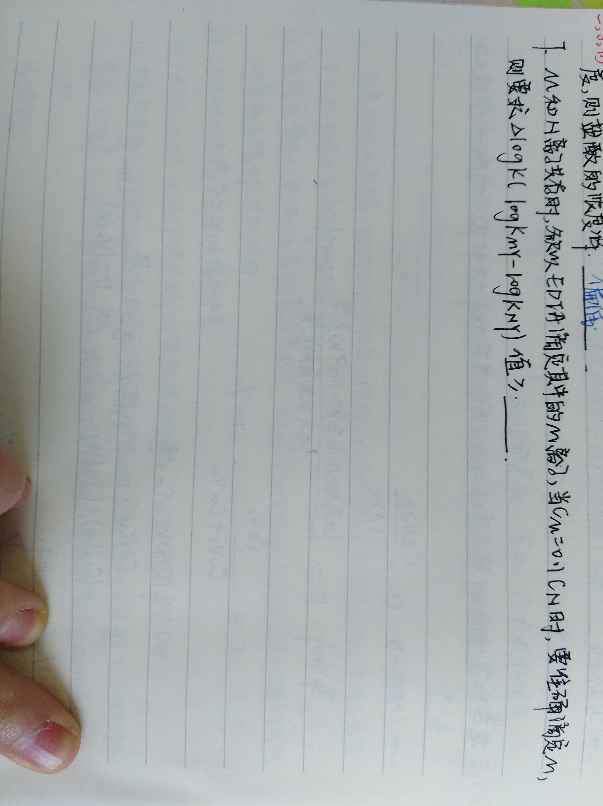 度,则盐酸的浓度将. 偏高.
7. M和N离子共存时,欲以EDTA滴定其中的M离子,当CM=0.1CN时,要准确滴定M,
则要求△logK(logKMY-logKNY)值≥____.